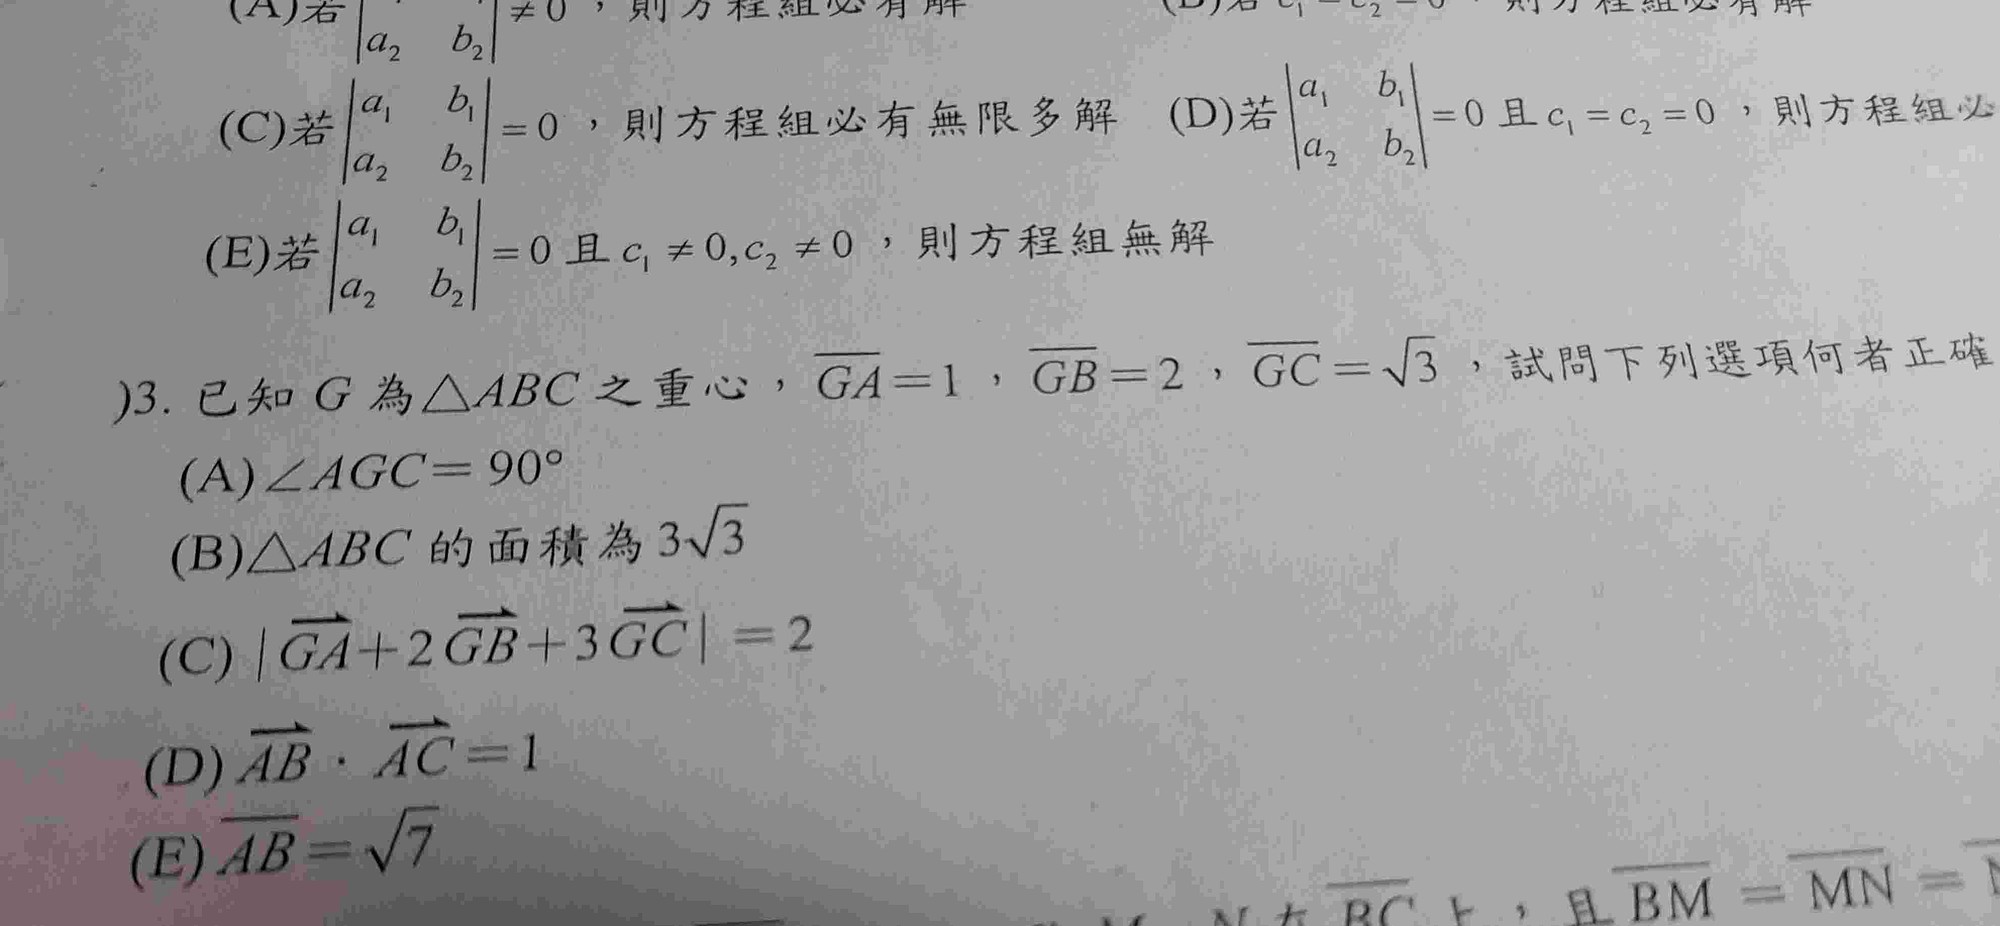 (A)若| a₂ b₂ |≠0，則方程組必有解
(C)若| a₁ b₁ ; a₂ b₂ |=0，則方程組必有無限多解 (D)若| a₁ b₁ ; a₂ b₂ |=0 且 c₁=c₂=0，則方程組必
(E)若| a₁ b₁ ; a₂ b₂ |=0 且 c₁≠0,c₂≠0，則方程組無解
)3. 已知 G 為△ABC 之重心，G̅A̅=1，G̅B̅=2，G̅C̅=√3，試問下列選項何者正確
(A)∠AGC=90°
(B)△ABC 的面積為 3√3
(C)|G⃗A⃗+2G⃗B⃗+3G⃗C⃗|=2
(D)A⃗B⃗·A⃗C⃗=1
(E)A̅B̅=√7
B̅C̅ 上，且 B̅M̅=M̅N̅=